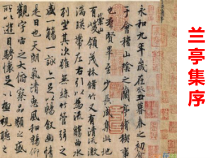 兰亭集序
永和九年歲在癸丑暮春之初會
于會稽山陰之蘭亭脩禊事
也群賢畢至少長咸集此地
有峻領茂林脩竹又有清流激
湍暎帶左右引以為流觴曲水
列坐其次雖無絲竹管弦之
盛一觴一詠亦足以暢敘幽情
是日也天朗氣清惠風和暢仰
觀宇宙之大俯察品類之盛
所以遊目騁懷足以極視聽之